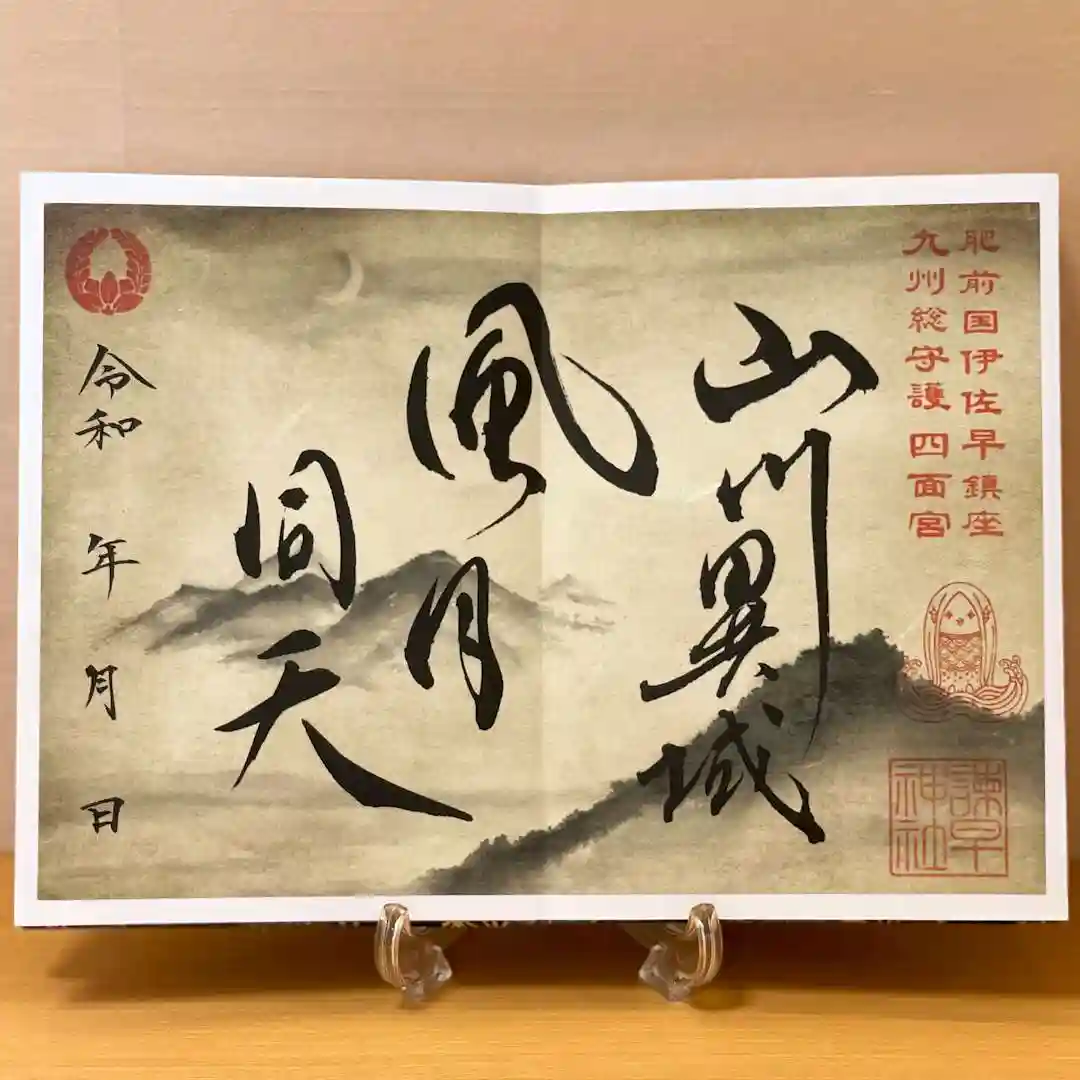 肥前国伊佐早鎮座
九州総守護 四面宮
諫早
神社
山川異域
風月
同天
令和 年 月 日